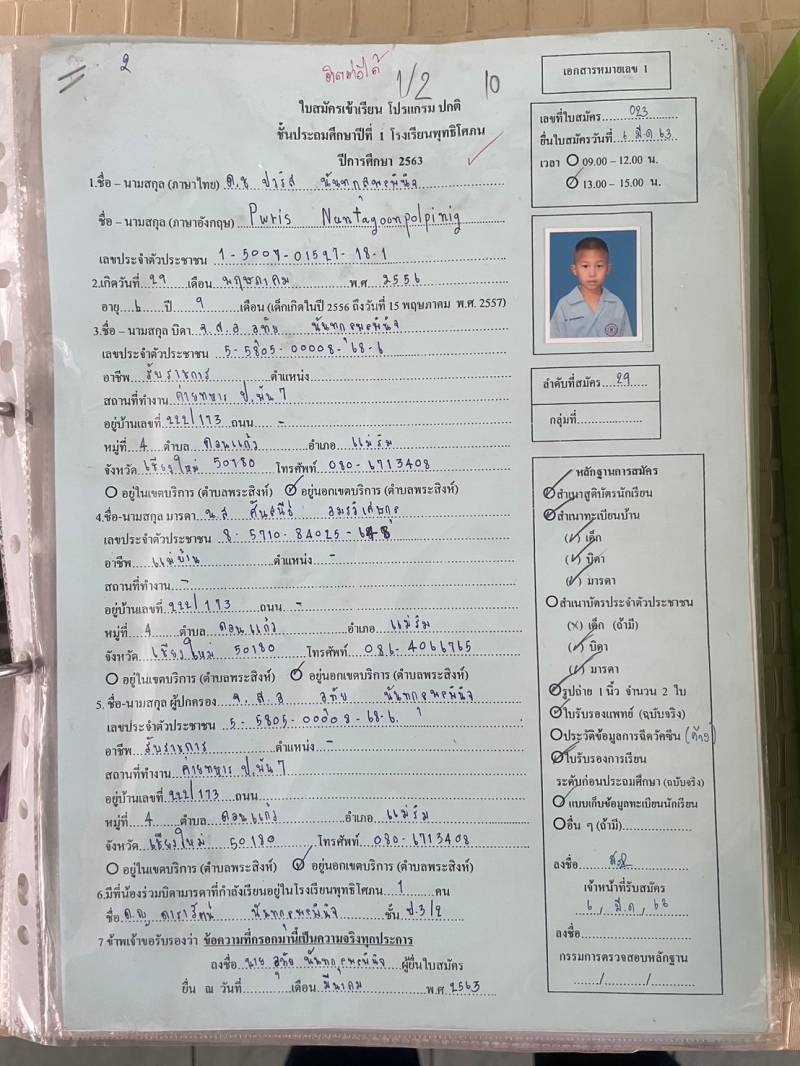 2
ติดต่อได้ 1/2 10
เอกสารหมายเลข 1
ใบสมัครเข้าเรียน โปรแกรม ปกติ
ชั้นประถมศึกษาปีที่ 1 โรงเรียนพุทธิโศภน
ปีการศึกษา 2563
เลขที่ใบสมัคร 023
ยื่นใบสมัครวันที่ ๖ มี.ค ๖๓
เวลา 09.00 – 12.00 น.
13.00 - 15.00 น.
1.ชื่อ – นามสกุล (ภาษาไทย) ด.ช ปวริส
ชื่อ – นามสกุล (ภาษาอังกฤษ) Pwris Nuntagoonpolpinig
เลขประจำตัวประชาชน
2.เกิดวันที่ 29 เดือน พฤษภาคม พ.ศ 2556
อายุ ๖ ปี 9 เดือน (เด็กเกิดในปี 2556 ถึงวันที่ 15 พฤษภาคม พ.ศ. 2557)
3.ชื่อ – นามสกุล บิดา จ.ส.อ อุทัย
เลขประจำตัวประชาชน 5-5805-00008-68-6
อาชีพ รับราชการ ตำแหน่ง
สถานที่ทำงาน ค่ายทหาร ป.พัน 7
อยู่บ้านเลขที่ 222/173 ถนน -
หมู่ที่ 4 ตำบล ดอนแก้ว อำเภอ แม่ริม
จังหวัด เชียงใหม่ 50180 โทรศัพท์ 080-6713408
อยู่ในเขตบริการ (ตำบลพระสิงห์) อยู่นอกเขตบริการ (ตำบลพระสิงห์)
4.ชื่อ-นามสกุล มารดา น.ส
เลขประจำตัวประชาชน
อาชีพ แม่บ้าน ตำแหน่ง -
สถานที่ทำงาน -
อยู่บ้านเลขที่ 222/173 ถนน -
หมู่ที่ 4 ตำบล ดอนแก้ว อำเภอ แม่ริม
จังหวัด เชียงใหม่ 50180 โทรศัพท์ 086-4066765
อยู่ในเขตบริการ (ตำบลพระสิงห์) อยู่นอกเขตบริการ (ตำบลพระสิงห์)
5. ชื่อ-นามสกุล ผู้ปกครอง จ.ส.อ อุทัย
เลขประจำตัวประชาชน 5-5805-00008-68-6
อาชีพ รับราชการ ตำแหน่ง -
สถานที่ทำงาน ค่ายทหาร ป.พัน 7
อยู่บ้านเลขที่ 222/173 ถนน
หมู่ที่ 4 ตำบล ดอนแก้ว อำเภอ แม่ริม
จังหวัด เชียงใหม่ 50180 โทรศัพท์ 080-6713408
อยู่ในเขตบริการ (ตำบลพระสิงห์) อยู่นอกเขตบริการ (ตำบลพระสิงห์)
6.มีพี่น้องร่วมบิดามารดาที่กำลังเรียนอยู่ในโรงเรียนพุทธิโศภน 1 คน
ชื่อ ด.ญ ดารารัตน์ ชั้น ป.3/2
7.ข้าพเจ้าขอรับรองว่า ข้อความที่กรอกมานี้เป็นความจริงทุกประการ
ลงชื่อ นาย อุทัย ผู้ยื่นใบสมัคร
ยื่น ณ วันที่ เดือน มีนาคม พ.ศ 2563
ลำดับที่สมัคร 29
กลุ่มที่
หลักฐานการสมัคร
สำเนาสูติบัตรนักเรียน
สำเนาทะเบียนบ้าน
(/) เด็ก
(/) บิดา
(/) มารดา
สำเนาบัตรประจำตัวประชาชน
(×) เด็ก (ถ้ามี)
(/) บิดา
(/) มารดา
รูปถ่าย 1 นิ้ว จำนวน 2 ใบ
ใบรับรองแพทย์ (ฉบับจริง)
ประวัติข้อมูลการฉีดวัคซีน (ค้าง)
ใบรับรองการเรียน
ระดับก่อนประถมศึกษา (ฉบับจริง)
แบบเก็บข้อมูลทะเบียนนักเรียน
อื่น ๆ (ถ้ามี)
ลงชื่อ
เจ้าหน้าที่รับสมัคร
๖ , มี.ค ,
ลงชื่อ
กรรมการตรวจสอบหลักฐาน